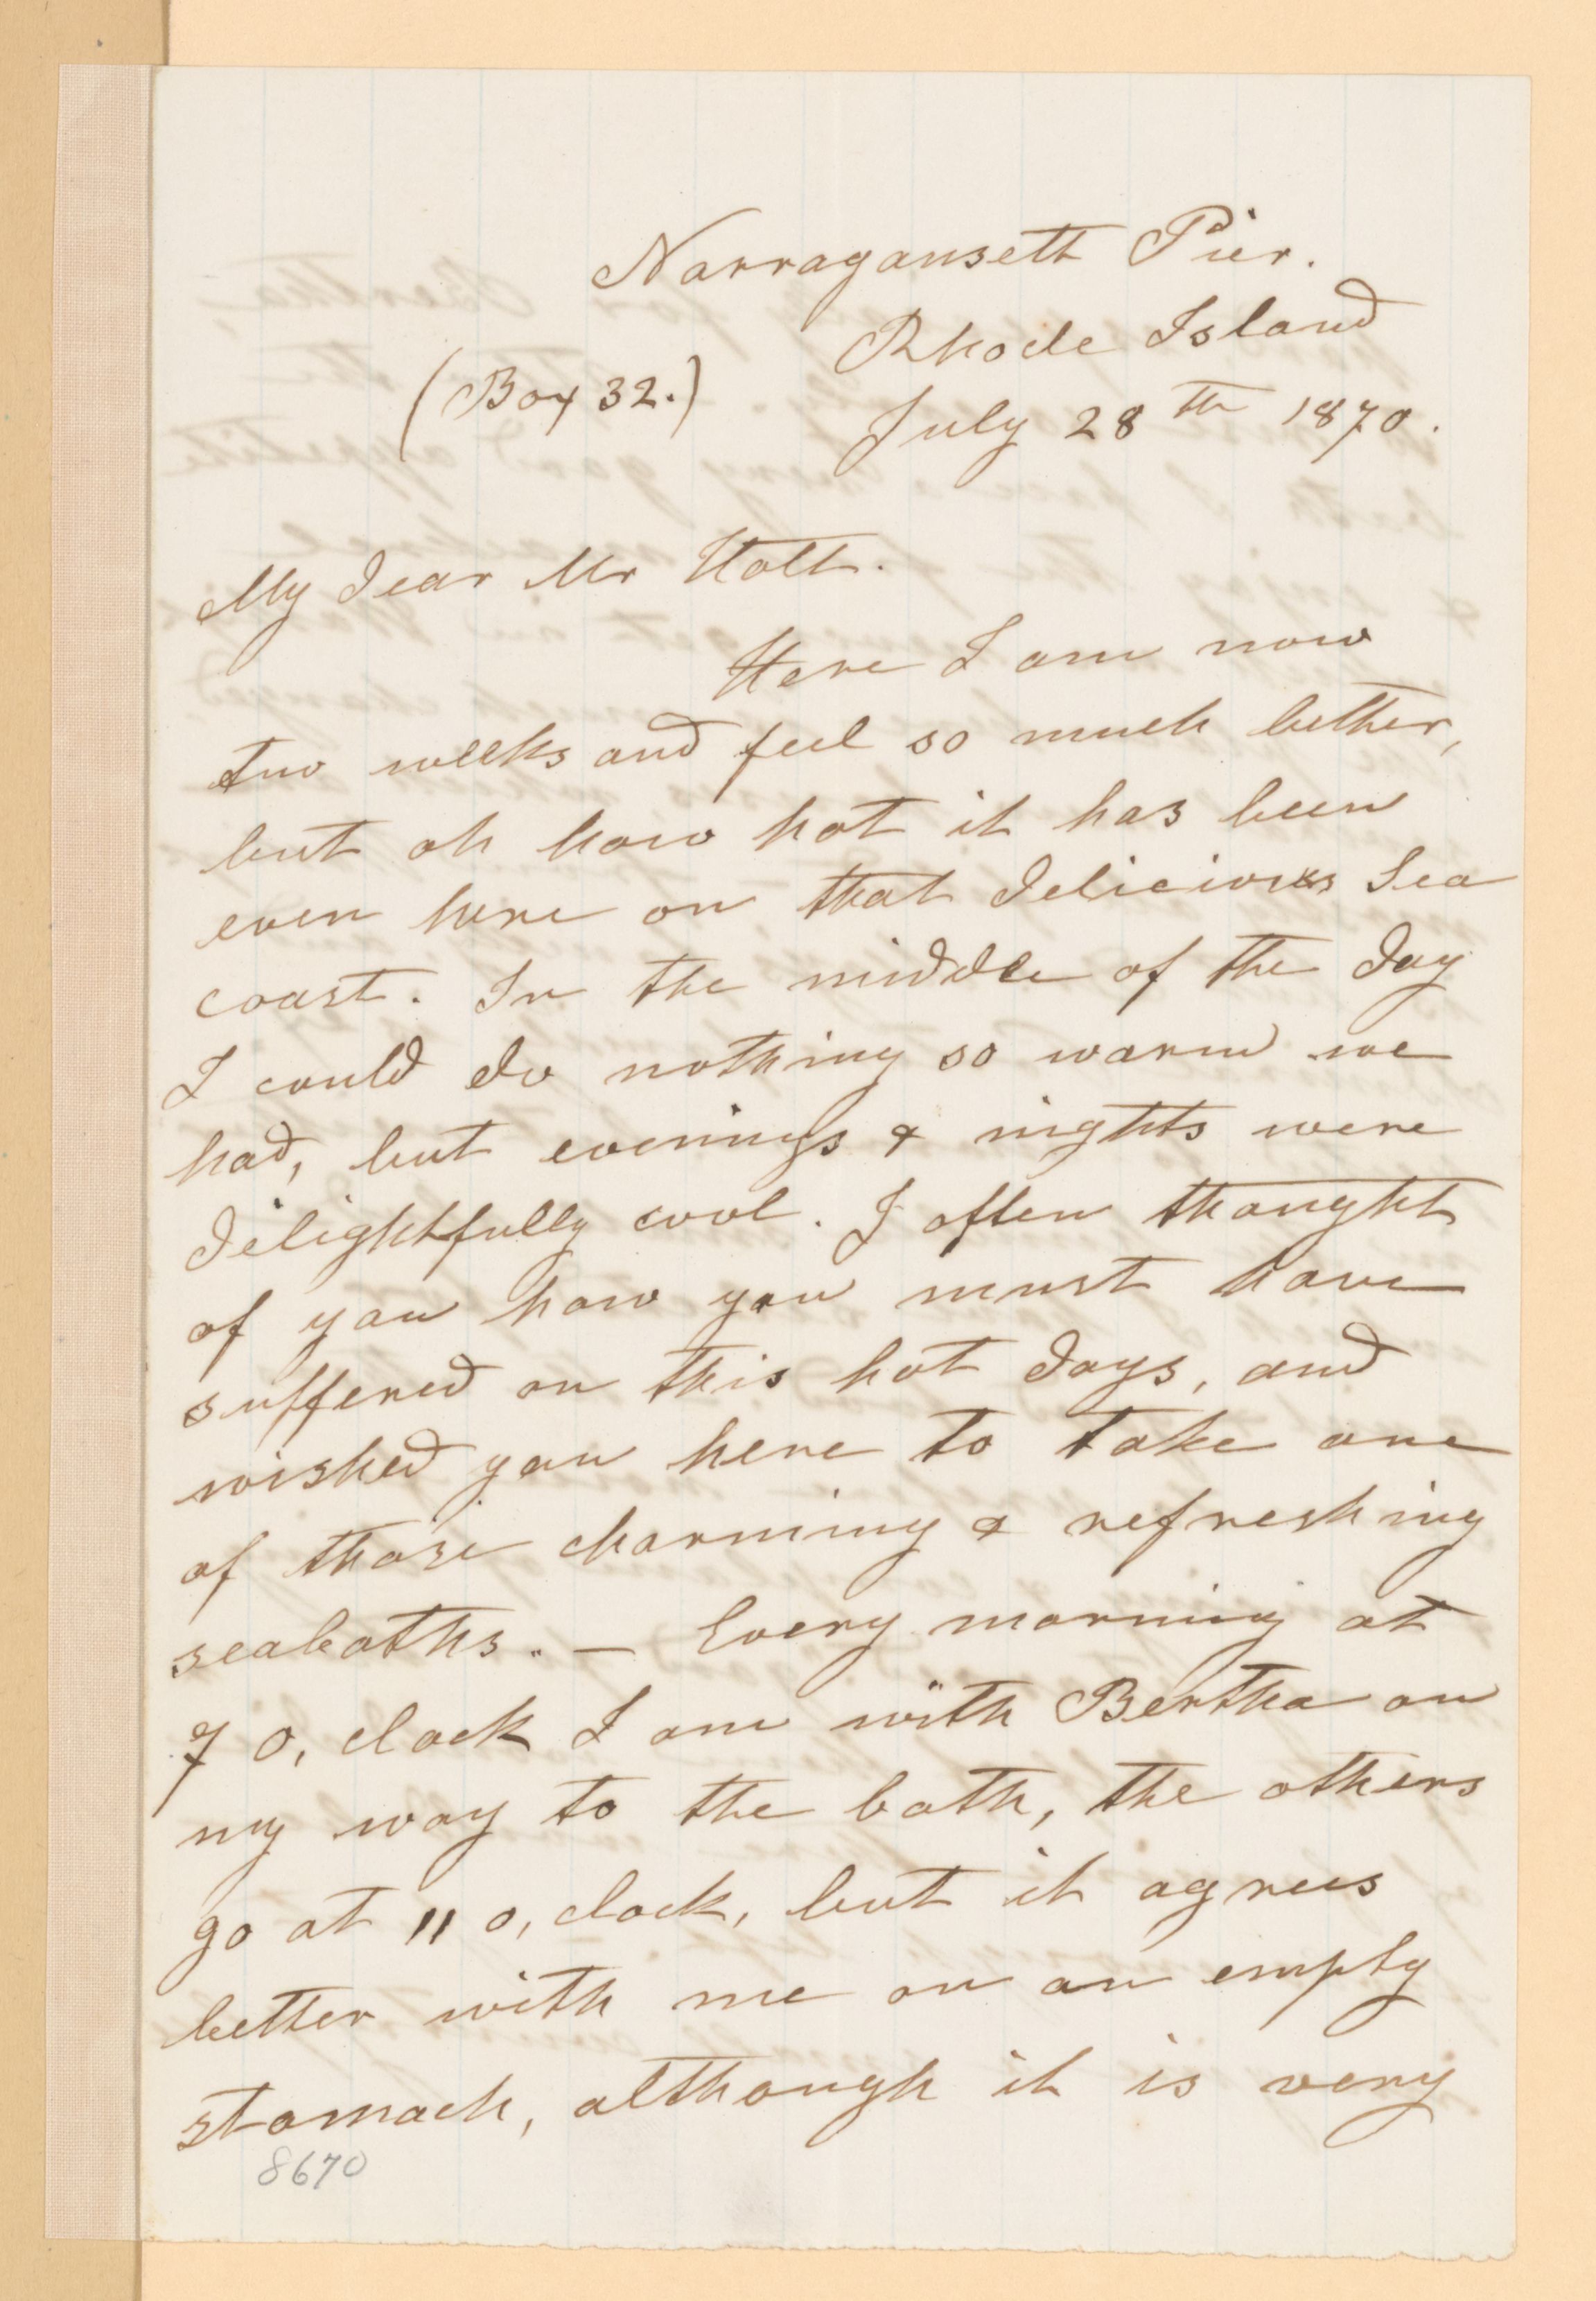 Narragansett Pier.
Rhode Island
(Box 32.)
July 28th 1870.
My dear Mr Holt.
Here I am now
two weeks and feel so much better,
but oh how hot it has been
even here on that delicious Sea
coast. In the middle of the day
I could do nothing so warm we
had, but evenings & nights were
delightfully cool. I often thought
of you how you must have
suffered on this hot days, and
wished you here to take one
of those charming & refreshing
seabaths. — Every morning at
7 o, clock I am with Bertha on
my way to the bath, the others
go at 11 o, clock, but it agrees
better with me on an empty
stomach, although it is very
8670